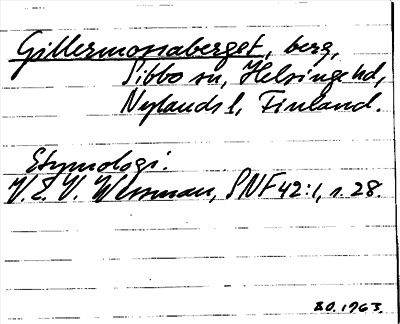 Gillermossaberget, berg,
Sibbo sn, Helsinge hd,
Nylands l, Finland.
Etymologi:
V.E.V. Wessman, SNF 42:1, s. 28.
1963.